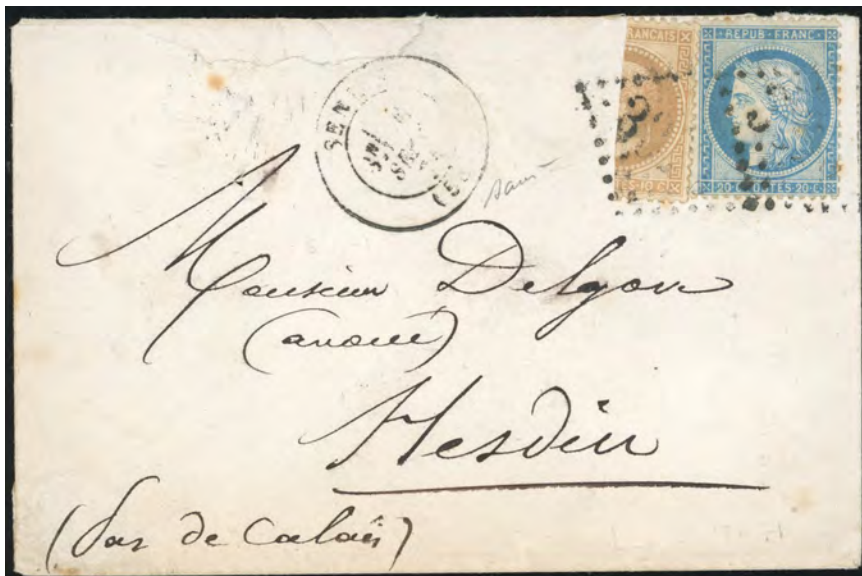 RANÇAIS
REPUB·FRANC
20·C·POSTES·20·C
10 C
SEN
Monsieur Delgove
(avoué)
Hesdin
(Pas de Calais)